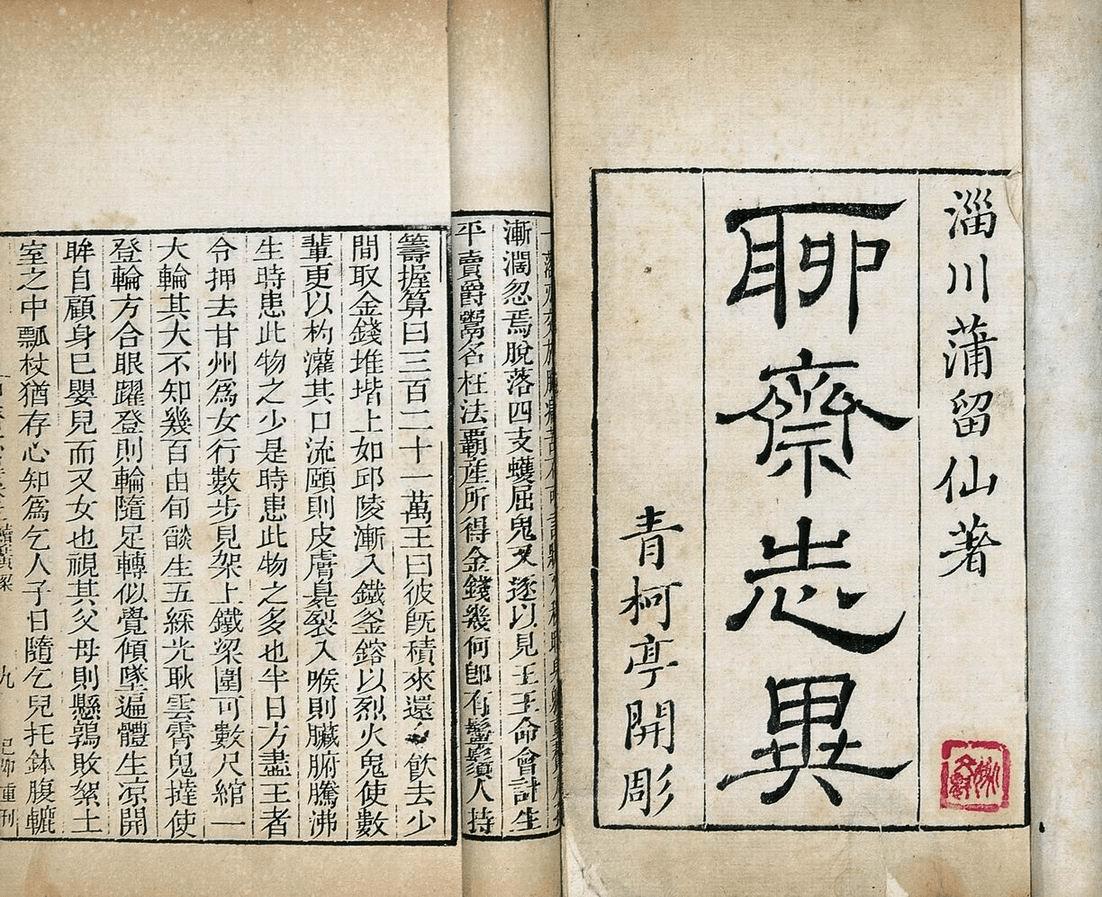 淄川蒲留仙著
聊齋志異
青柯亭開彫
漸潤忽焉脫落四支蠖屈鬼又逐以見王王命會計生
平賣爵鬻名枉法霸産所得金錢幾何卽有鬡鬚人持
籌握算曰三百二十一萬王曰彼旣積來還飮去少
間取金錢堆堦上如邱陵漸入鐵釜鎔以烈火鬼使數
輩更以杓灌其口流頤則皮膚臭裂入喉則臟腑騰沸
生時患此物之少是時患此物之多也半日方盡王者
令押去甘州爲女行數步見架上鐵梁圍可數尺綰一
大輪其大不知幾百由旬燄生五綵光耿雲霄鬼撻使
登輪方合眼躍登則輪隨足轉似覺傾墜遍體生凉開
眸自顧身已嬰兒而又女也視其父母則懸鶉敗絮土
室之中瓢杖猶存心知爲乞人子日隨乞兒托鉢腹轆
續黃粱
九
重刊